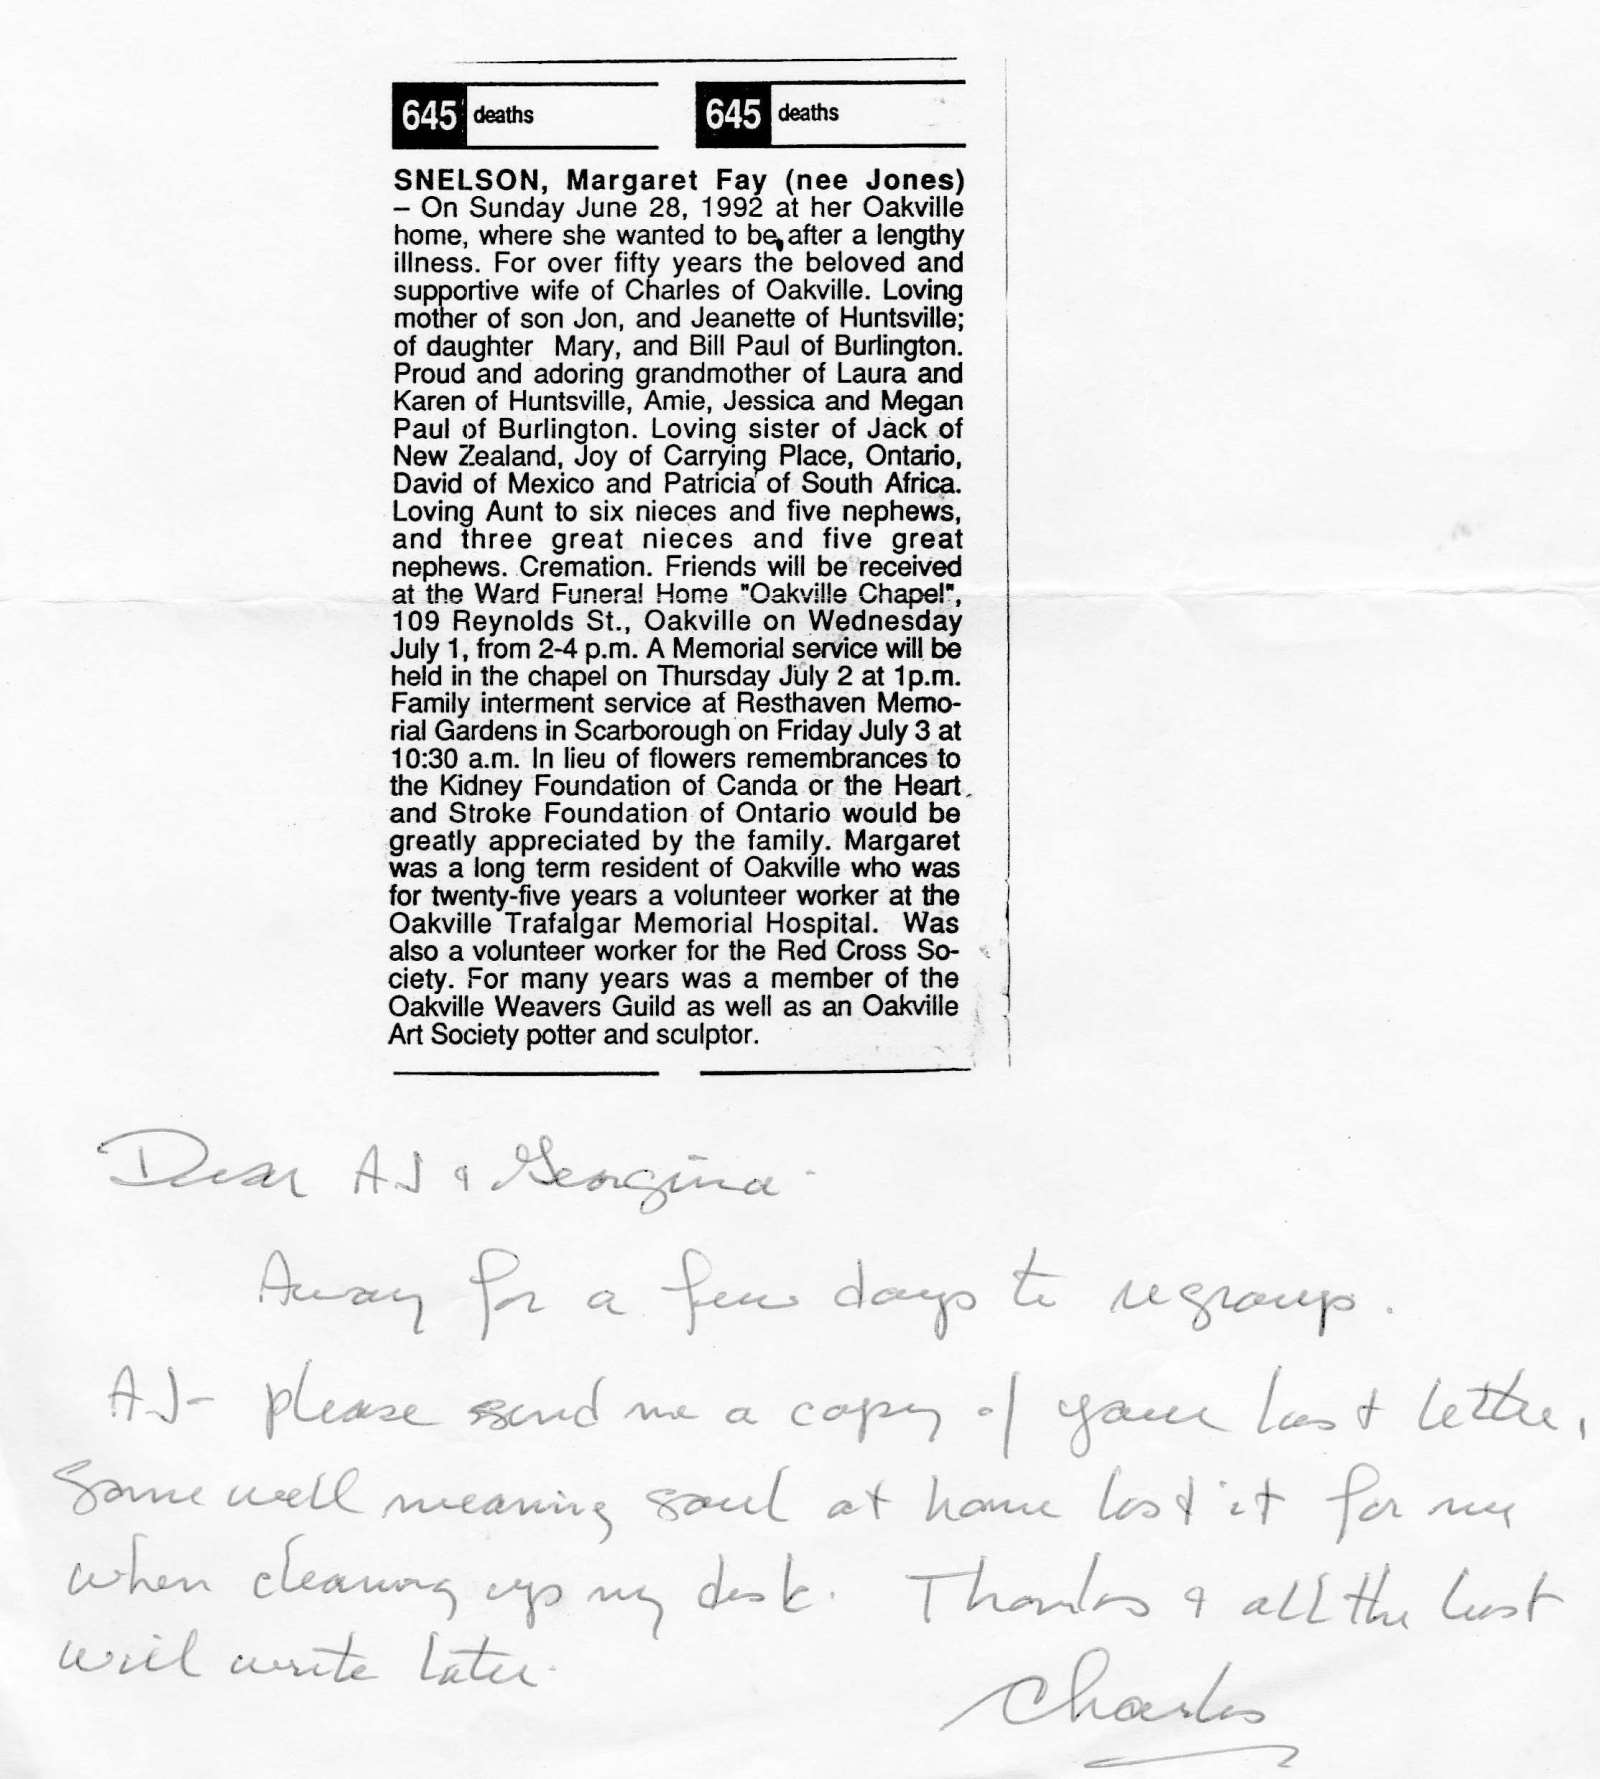 645 deaths 645 deaths
SNELSON, Margaret Fay (nee Jones)
– On Sunday June 28, 1992 at her Oakville
home, where she wanted to be, after a lengthy
illness. For over fifty years the beloved and
supportive wife of Charles of Oakville. Loving
mother of son Jon, and Jeanette of Huntsville;
of daughter Mary, and Bill Paul of Burlington.
Proud and adoring grandmother of Laura and
Karen of Huntsville, Amie, Jessica and Megan
Paul of Burlington. Loving sister of Jack of
New Zealand, Joy of Carrying Place, Ontario,
David of Mexico and Patricia of South Africa.
Loving Aunt to six nieces and five nephews,
and three great nieces and five great
nephews. Cremation. Friends will be received
at the Ward Funeral Home "Oakville Chapel",
109 Reynolds St., Oakville on Wednesday
July 1, from 2-4 p.m. A Memorial service will be
held in the chapel on Thursday July 2 at 1p.m.
Family interment service at Resthaven Memo-
rial Gardens in Scarborough on Friday July 3 at
10:30 a.m. In lieu of flowers remembrances to
the Kidney Foundation of Canda or the Heart
and Stroke Foundation of Ontario would be
greatly appreciated by the family. Margaret
was a long term resident of Oakville who was
for twenty-five years a volunteer worker at the
Oakville Trafalgar Memorial Hospital. Was
also a volunteer worker for the Red Cross So-
ciety. For many years was a member of the
Oakville Weavers Guild as well as an Oakville
Art Society potter and sculptor.
Dear AJ & Georgina -
Away for a few days to regroup.
AJ- please send me a copy of your last letter,
some well meaning soul at home lost it for me
when cleaning up my desk. Thanks & all the best
will write later.
Charles